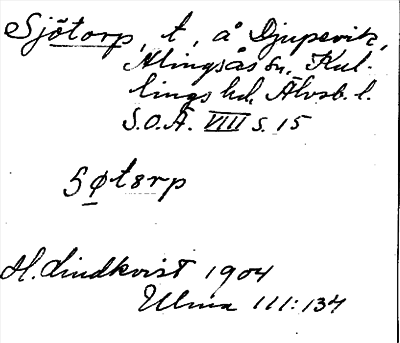 Sjötorp, t, å Djupevik,
Alingsås sn, Kul-
lings hd, Älvsb. l.
S.O.Ä. VIII s. 15
sø̠tɜrp
H. Lindkvist 1904
Ulma 111:134